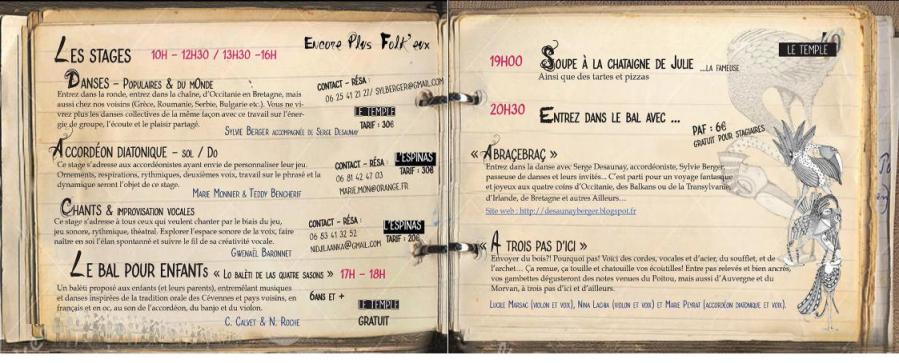 Encore Plus Folk'eux
LES STAGES 10H - 12H30 / 13H30 -16H
DANSES - POPULAIRES & DU MONDE
Entrez dans la ronde, entrez dans la chaîne, d'Occitanie en Bretagne, mais
aussi chez nos voisins (Grèce, Roumanie, Serbie, Bulgarie etc.). Vous ne vi-
vrez plus les danses collectives de la même façon avec ce travail sur l'éner-
gie de groupe, l'écoute et le plaisir partagé.
SYLVIE BERGER ACCOMPAGNÉE DE SERGE DESAUNAY
CONTACT - RÉSA :
06 25 41 21 27/ SYLBERGER@GMAIL.COM
LE TEMPLE
TARIF : 30€
ACCORDÉON DIATONIQUE - SOL / DO
Ce stage s'adresse aux accordéonistes ayant envie de personnaliser leur jeu.
Ornements, respirations, rythmiques, deuxièmes voix, travail sur le phrasé et la
dynamique seront l'objet de ce stage.
MARIE MONNIER & TEDDY BENCHERIF
CONTACT - RÉSA :
06 81 42 47 03
MARIE.MON@ORANGE.FR
L'ESPINAS
TARIF : 30€
CHANTS & IMPROVISATION VOCALES
Ce stage s'adresse à tous ceux qui veulent chanter par le biais du jeu,
jeu sonore, rythmique, théatral. Explorer l'espace sonore de la voix, faire
naître en soi l'élan spontanné et suivre le fil de sa créativité vocale.
GWENAËL BARONNET
CONTACT - RÉSA :
06 83 41 32 52
NIDJLAANKA@GMAIL.COM
L'ESPINAS
TARIF : 20€
LE BAL POUR ENFANTS « LO BALÈTI DE LAS QUATRE SASONS » 17H - 18H
Un balèti proposé aux enfants (et leurs parents), entremêlant musiques
et danses inspirées de la tradition orale des Cévennes et pays voisins, en
français et en oc, au son de l'accordéon, du banjo et du violon.
C. CALVET & N. ROCHE
6ANS ET +
LE TEMPLE
GRATUIT
LE TEMPLE
19H00 SOUPE À LA CHATAIGNE DE JULIE ...LA FAMEUSE
Ainsi que des tartes et pizzas
20H30 ENTREZ DANS LE BAL AVEC ...
PAF : 6€
GRATUIT POUR STAGIAIRES
« ABRAÇEBRAÇ »
Entrez dans la danse avec Serge Desaunay, accordéoniste, Sylvie Berger,
passeuse de danses et leurs invités... C'est parti pour un voyage fantasque
et joyeux aux quatre coins d'Occitanie, des Balkans ou de la Transylvanie,
d'Irlande, de Bretagne et autres Ailleurs...
Site web : http://desaunayberger.blogspot.fr
« A TROIS PAS D'ICI »
Envoyer du bois?! Pourquoi pas! Voici des cordes, vocales et d'acier, du soufflet, et de
l'archet... Ça remue, ça touille et chatouille vos écoutilles! Entre pas relevés et bien ancrés,
vos gambettes dégusteront des notes venues du Poitou, mais aussi d'Auvergne et du
Morvan, à trois pas d'ici et d'ailleurs.
LUCILE MARSAC (VIOLON ET VOIX), NINA LACHIA (VIOLON ET VOIX) ET MARIE PEYRAT (ACCORDÉON DIATONIQUE ET VOIX).